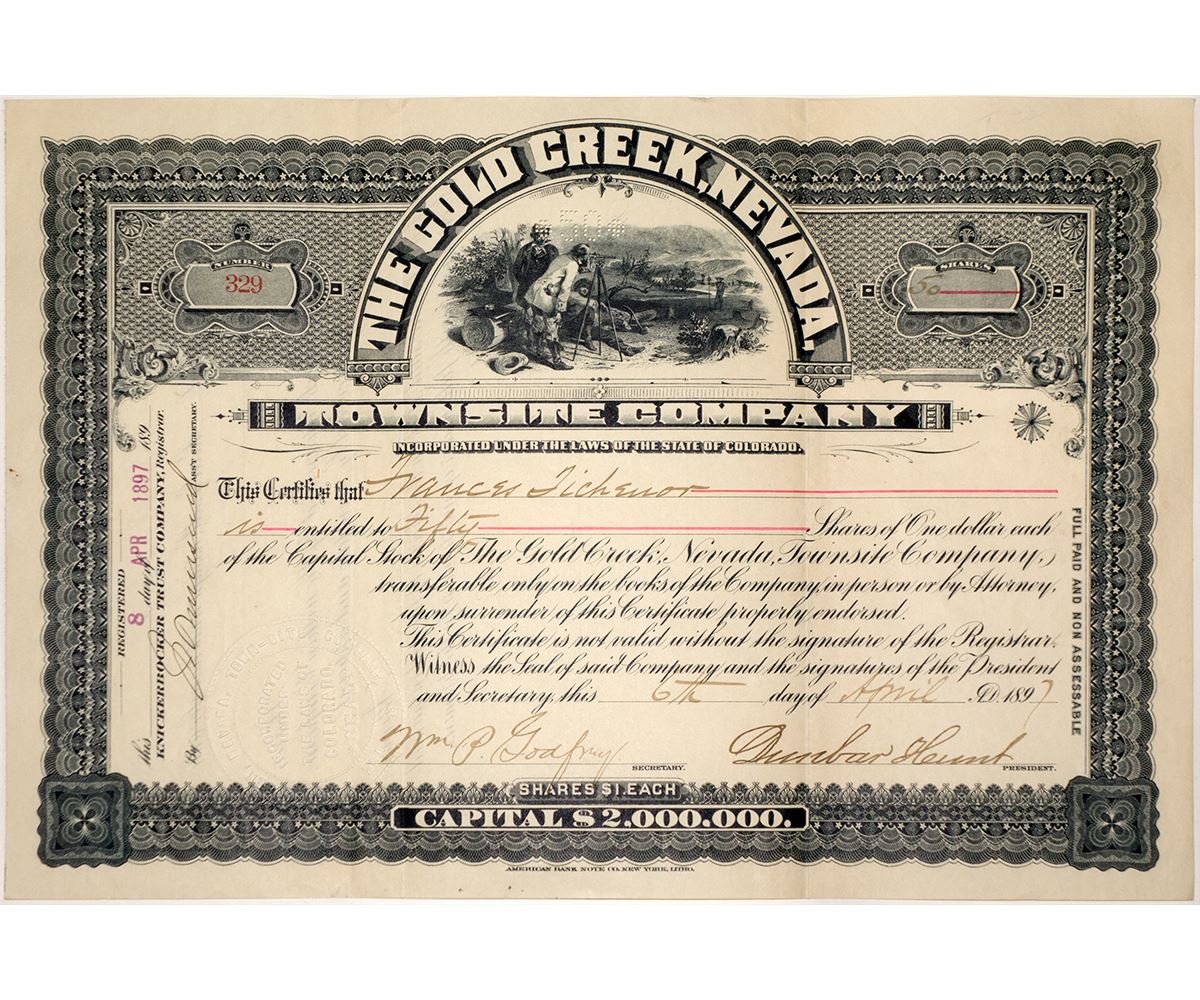 THE GOLD CREEK, NEVADA,
*50*
NUMBER
329
SHARES
50
TOWNSITE COMPANY
INCORPORATED UNDER THE LAWS OF THE STATE OF COLORADO.
This Certifies that Frances Tichenor
is entitled to Fifty Shares of One dollar each
of the Capital Stock of The Gold Creek, Nevada, Townsite Company,
transferable only on the books of the Company, in person or by Attorney,
upon surrender of this Certificate properly endorsed.
This Certificate is not valid without the signature of the Registrar.
Witness the Seal of said Company and the signatures of the President
and Secretary, this 6th day of April A.D. 1897
Wm. P. Godfrey
SECRETARY.
Dunbar Hunt
PRESIDENT.
SHARES $1. EACH
CAPITAL $2,000,000.
AMERICAN BANK NOTE CO. NEW YORK, LITHO.
REGISTERED
this 8 day of APR 1897 189
KNICKERBOCKER TRUST COMPANY, Registrar.
By
ASST SECRETARY.
FULL PAID AND NON ASSESSABLE
INCORPORATED
UNDER
THE LAWS OF
COLORADO
SEAL